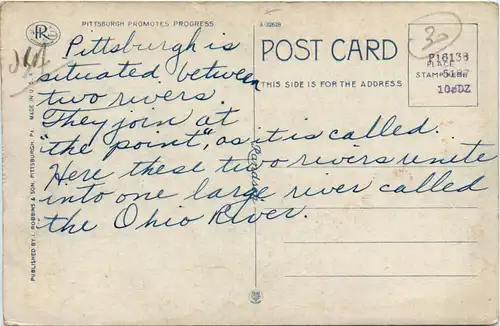 PITTSBURGH PROMOTES PROGRESS
A-92628
PR
30
POST CARD
THIS SIDE IS FOR THE ADDRESS
PLACE
STAMP HERE
P16138
10¢DZ
Pittsburgh is
situated between
two rivers.
They join at
"the point", as it is called.
Here these two rivers unite
into one large river called
the Ohio River.
PUBLISHED BY I. ROBBINS & SON, PITTSBURGH, PA. MADE IN U.S.A.